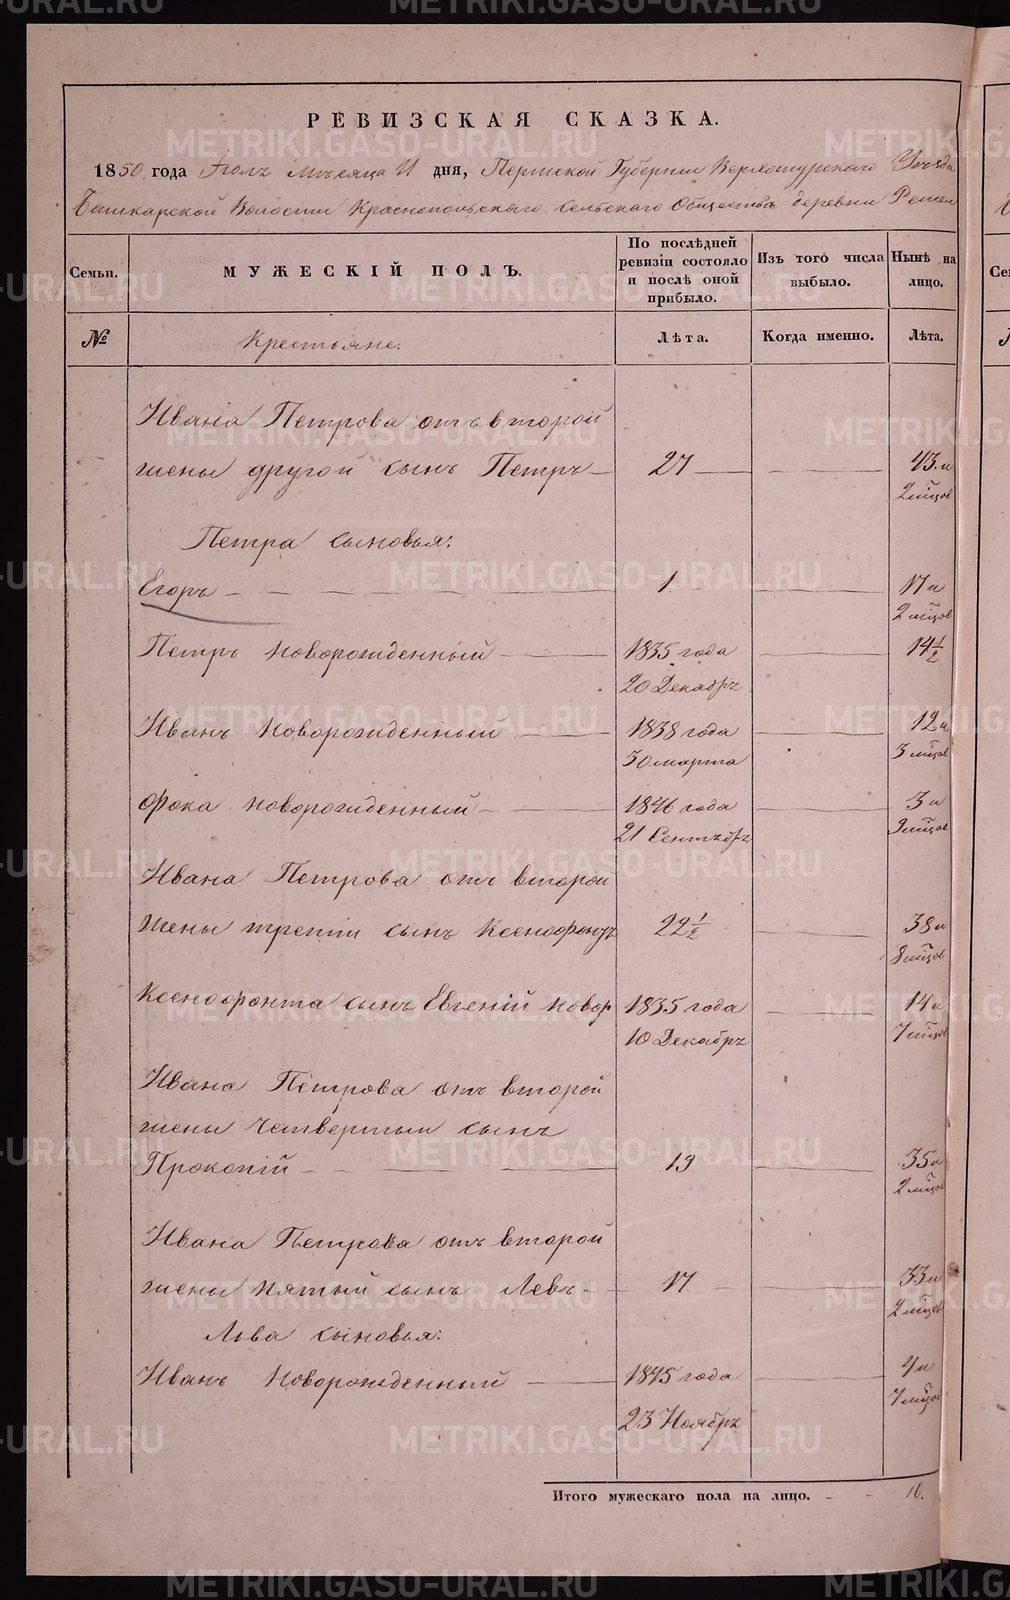 РЕВИЗСКАЯ СКАЗКА.
1850 года Іюля Мѣсяца 11 дня, Пермской Губерніи Верхотурскаго Уѣзда
Башкарской Волости Краснопольскаго Сельскаго Общества деревни
Семьи.
МУЖЕСКІЙ ПОЛЪ.
По послѣдней
ревизіи состояло
и послѣ оной
прибыло.
Изъ того числа
выбыло.
Нынѣ на
лицо.
№
Крестьяне.
Лѣта.
Когда именно.
Лѣта.
Ивана Петрова отъ второй
жены другой сынъ Петръ 27 43 и
2 мѣцов
Петра сыновья:
Егоръ 1 17 и
2 мѣцов
Петръ новорожденный 1835 года 14½
20 Декабрѣ
Иванъ Новорожденный 1838 года 12 и
30 марта 3 мѣцов
Фока новорожденный 1846 года 3 и
21 Сентебрѣ 9 мѣцов
Ивана Петрова отъ второй
жены третій сынъ Ксенофонтъ 22½ 38 и
8 мѣцов
Ксенофонта сынъ Евгеній новор 1835 года 14 и
10 Декабрѣ 7 мѣцов
Ивана Петрова отъ второй
жены четвертый сынъ
Прокопій 19 35 и
2 мѣцов
Ивана Петрова отъ второй
жены пятый сынъ Левъ 17 33 и
2 мѣцов
Льва сыновья:
Иванъ Новорожденный 1845 года 4 и
23 Ноябрѣ 7 мѣцов
Итого мужескаго пола на лицо. 10.
METRIKI.GASO-URAL.RU